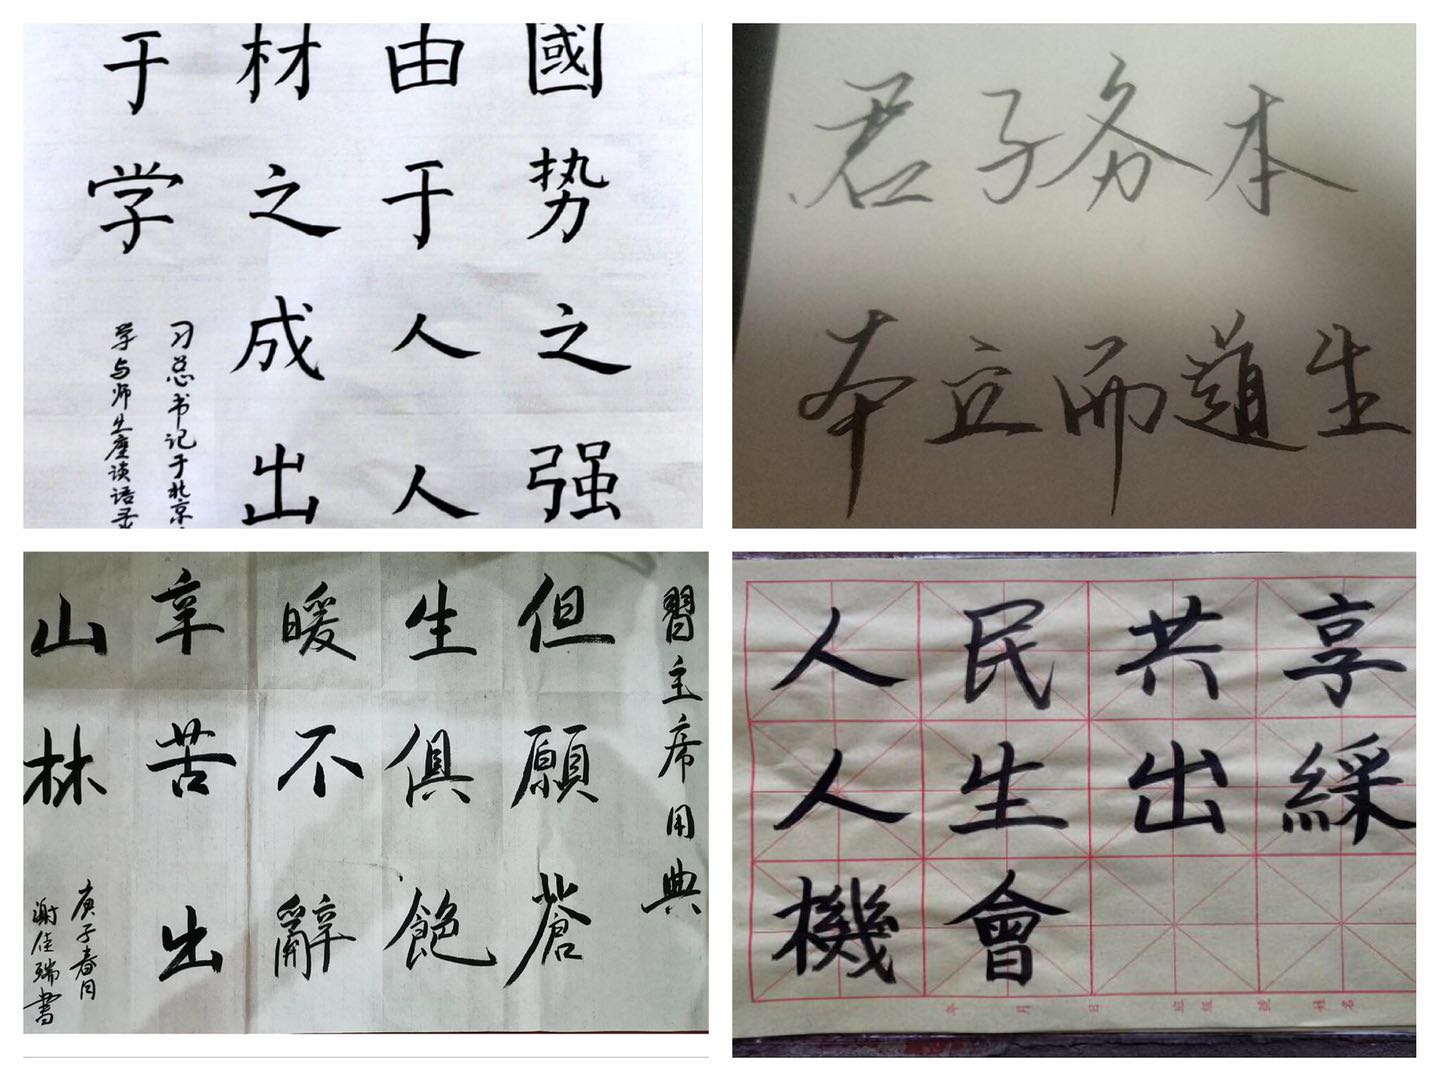 國势之强
由于人人
材之成出
于学
习总书记于北京
学与师生座谈语录
君子务本
本立而道生
習主席用典
但願蒼
生俱飽
暖不辭
辛苦出
山林
庚子春月
谢佳瑞書
人民共享
人生出綵
機會
年 月 日 班级 號 姓名